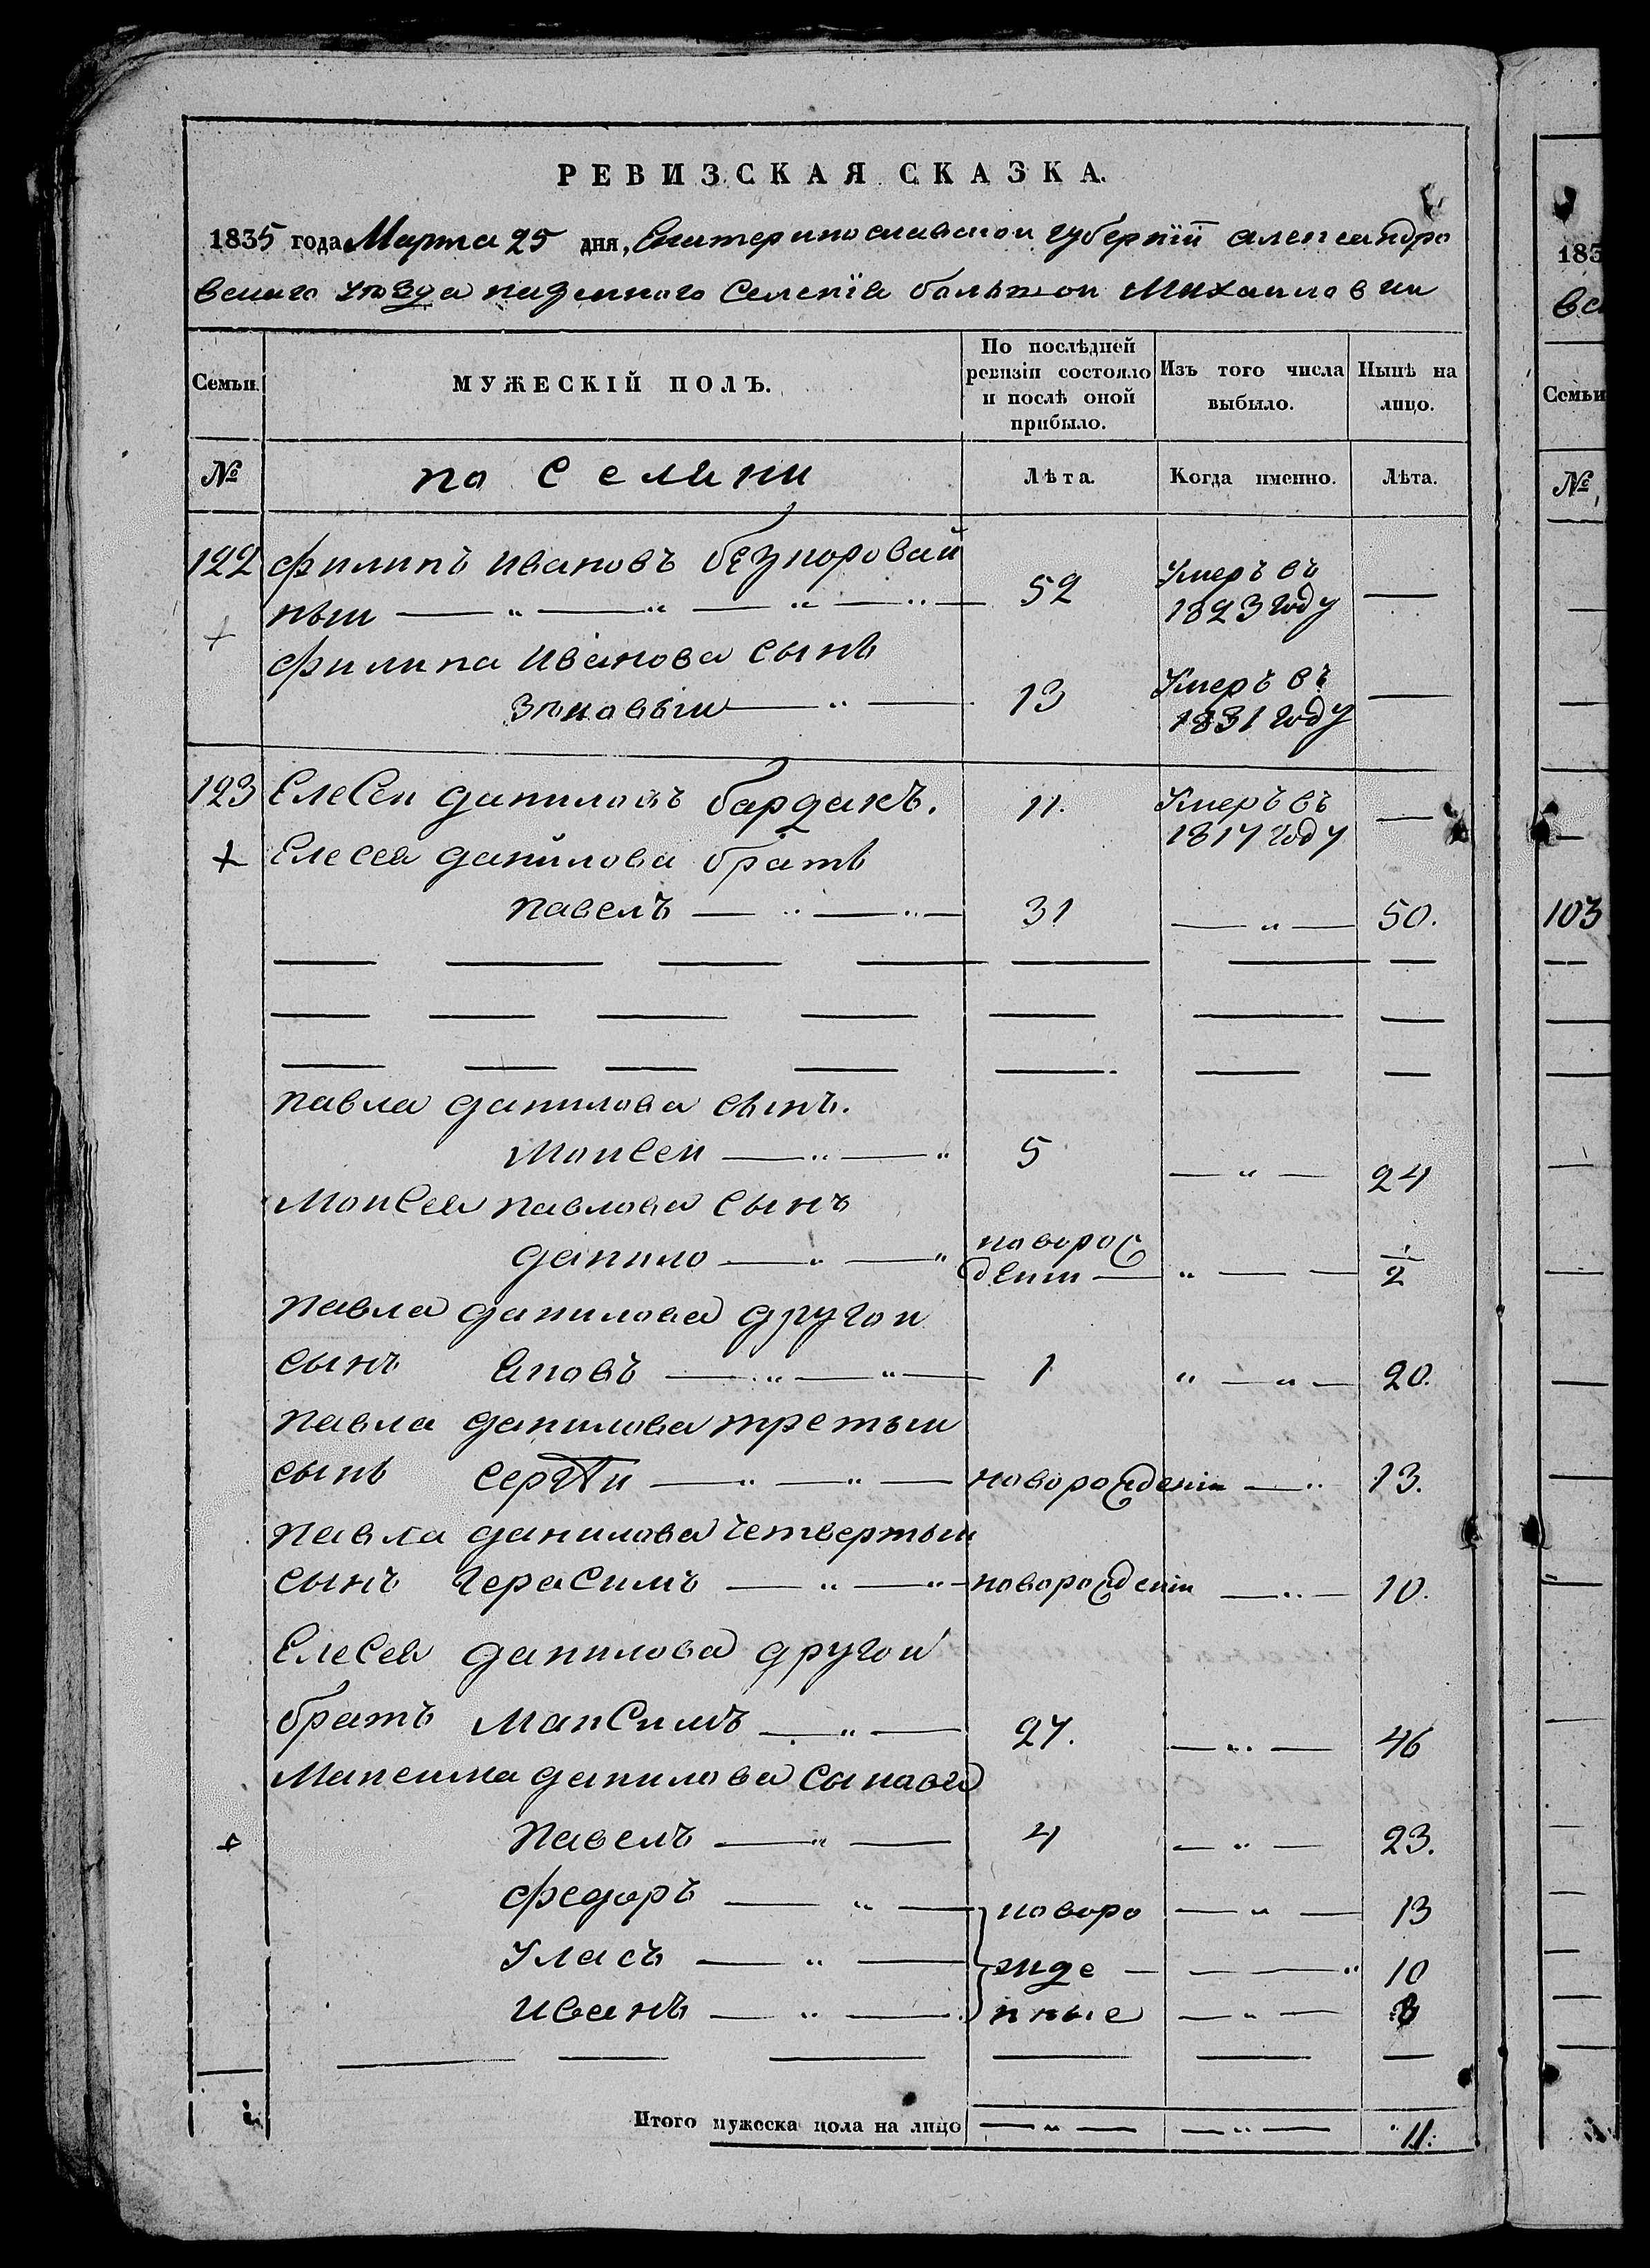 РЕВИЗСКАЯ СКАЗКА.
1835 года Марта 25 дня, Екатеринославской губерніи александро
вскаго уѣзда казеннаго Селенія большой Михаиловки
Семьи.
МУЖЕСКІЙ ПОЛЪ.
По послѣдней ревизіи состояло и послѣ оной прибыло.
Изъ того числа выбыло.
Нынѣ на лицо.
№
Лѣта.
Когда именно.
Лѣта.
122 филипъ ивановъ безкоровай
ный — 52 Умеръ въ 1823 году —
филипа иванова сынъ
зѣновыи — 13 Умеръ въ 1831 году —
123 Елесеи даниловъ бардакъ. 11. Умеръ въ 1817 году —
Елесея данилова братъ
павелъ — 31 — 50.
павла данилова сынъ.
Моисеи — 5 — 24
Моисея павлова сынъ
данило — новорож
дени — 1/2
павла данилова другои
сынъ Яковъ — 1 — 20.
павла данилова третыи
сынъ Сергѣи — новорожденіи — 13.
павла данилова четвертыи
сынъ Герасимъ — новорожденіи — 10.
Елесея данилова другои
братъ Максимъ — 27. — 46
Максима данилова сыновя
павелъ — 4 — 23.
федоръ — новоро — 13
Уласъ — жде — 10
иванъ — нные — 8
Итого мужеска пола на лицо — 11.
183
вс
Семьи
№
103